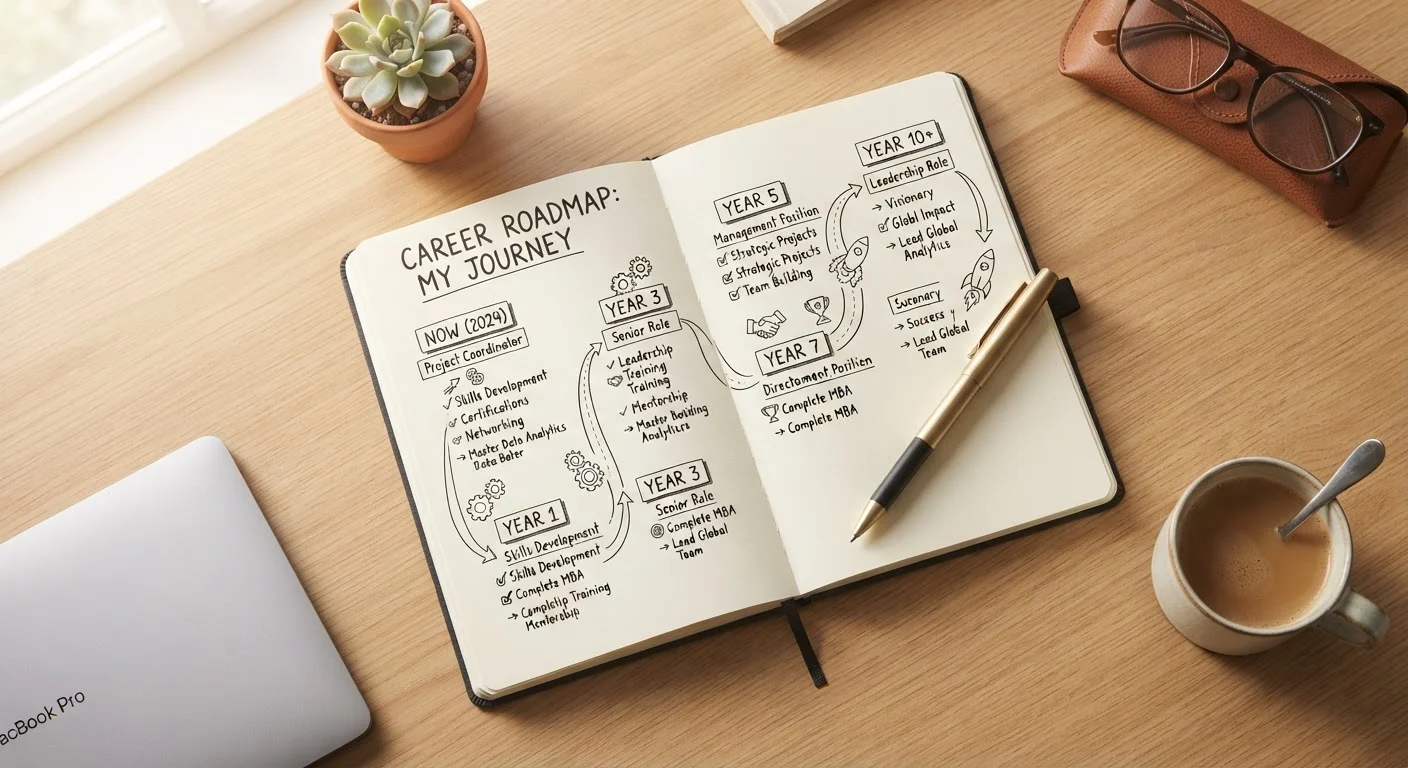 CAREER ROADMAP:
MY JOURNEY
NOW (2024)
Project Coordinator
Skills Development
Certifications
Networking
→ Master Data Analytics
Data
YEAR 1
Skills Development
Skills Development
Complete MBA
→ Training
YEAR 3
Senior Role
Leadership
Training
Training
Mentorship
→ Master Building
Analytics
YEAR 3
Senior Role
Complete MBA
→ Lead Global
Team
YEAR 5
Management
Strategic Projects
Strategic Projects
Team Building
YEAR 7
Complete MBA
→ Complete MBA
YEAR 10+
Leadership Role
→ Visionary
Global Impact
→ Lead Global
Analytics
→ Lead Global
Team
acBook Pro